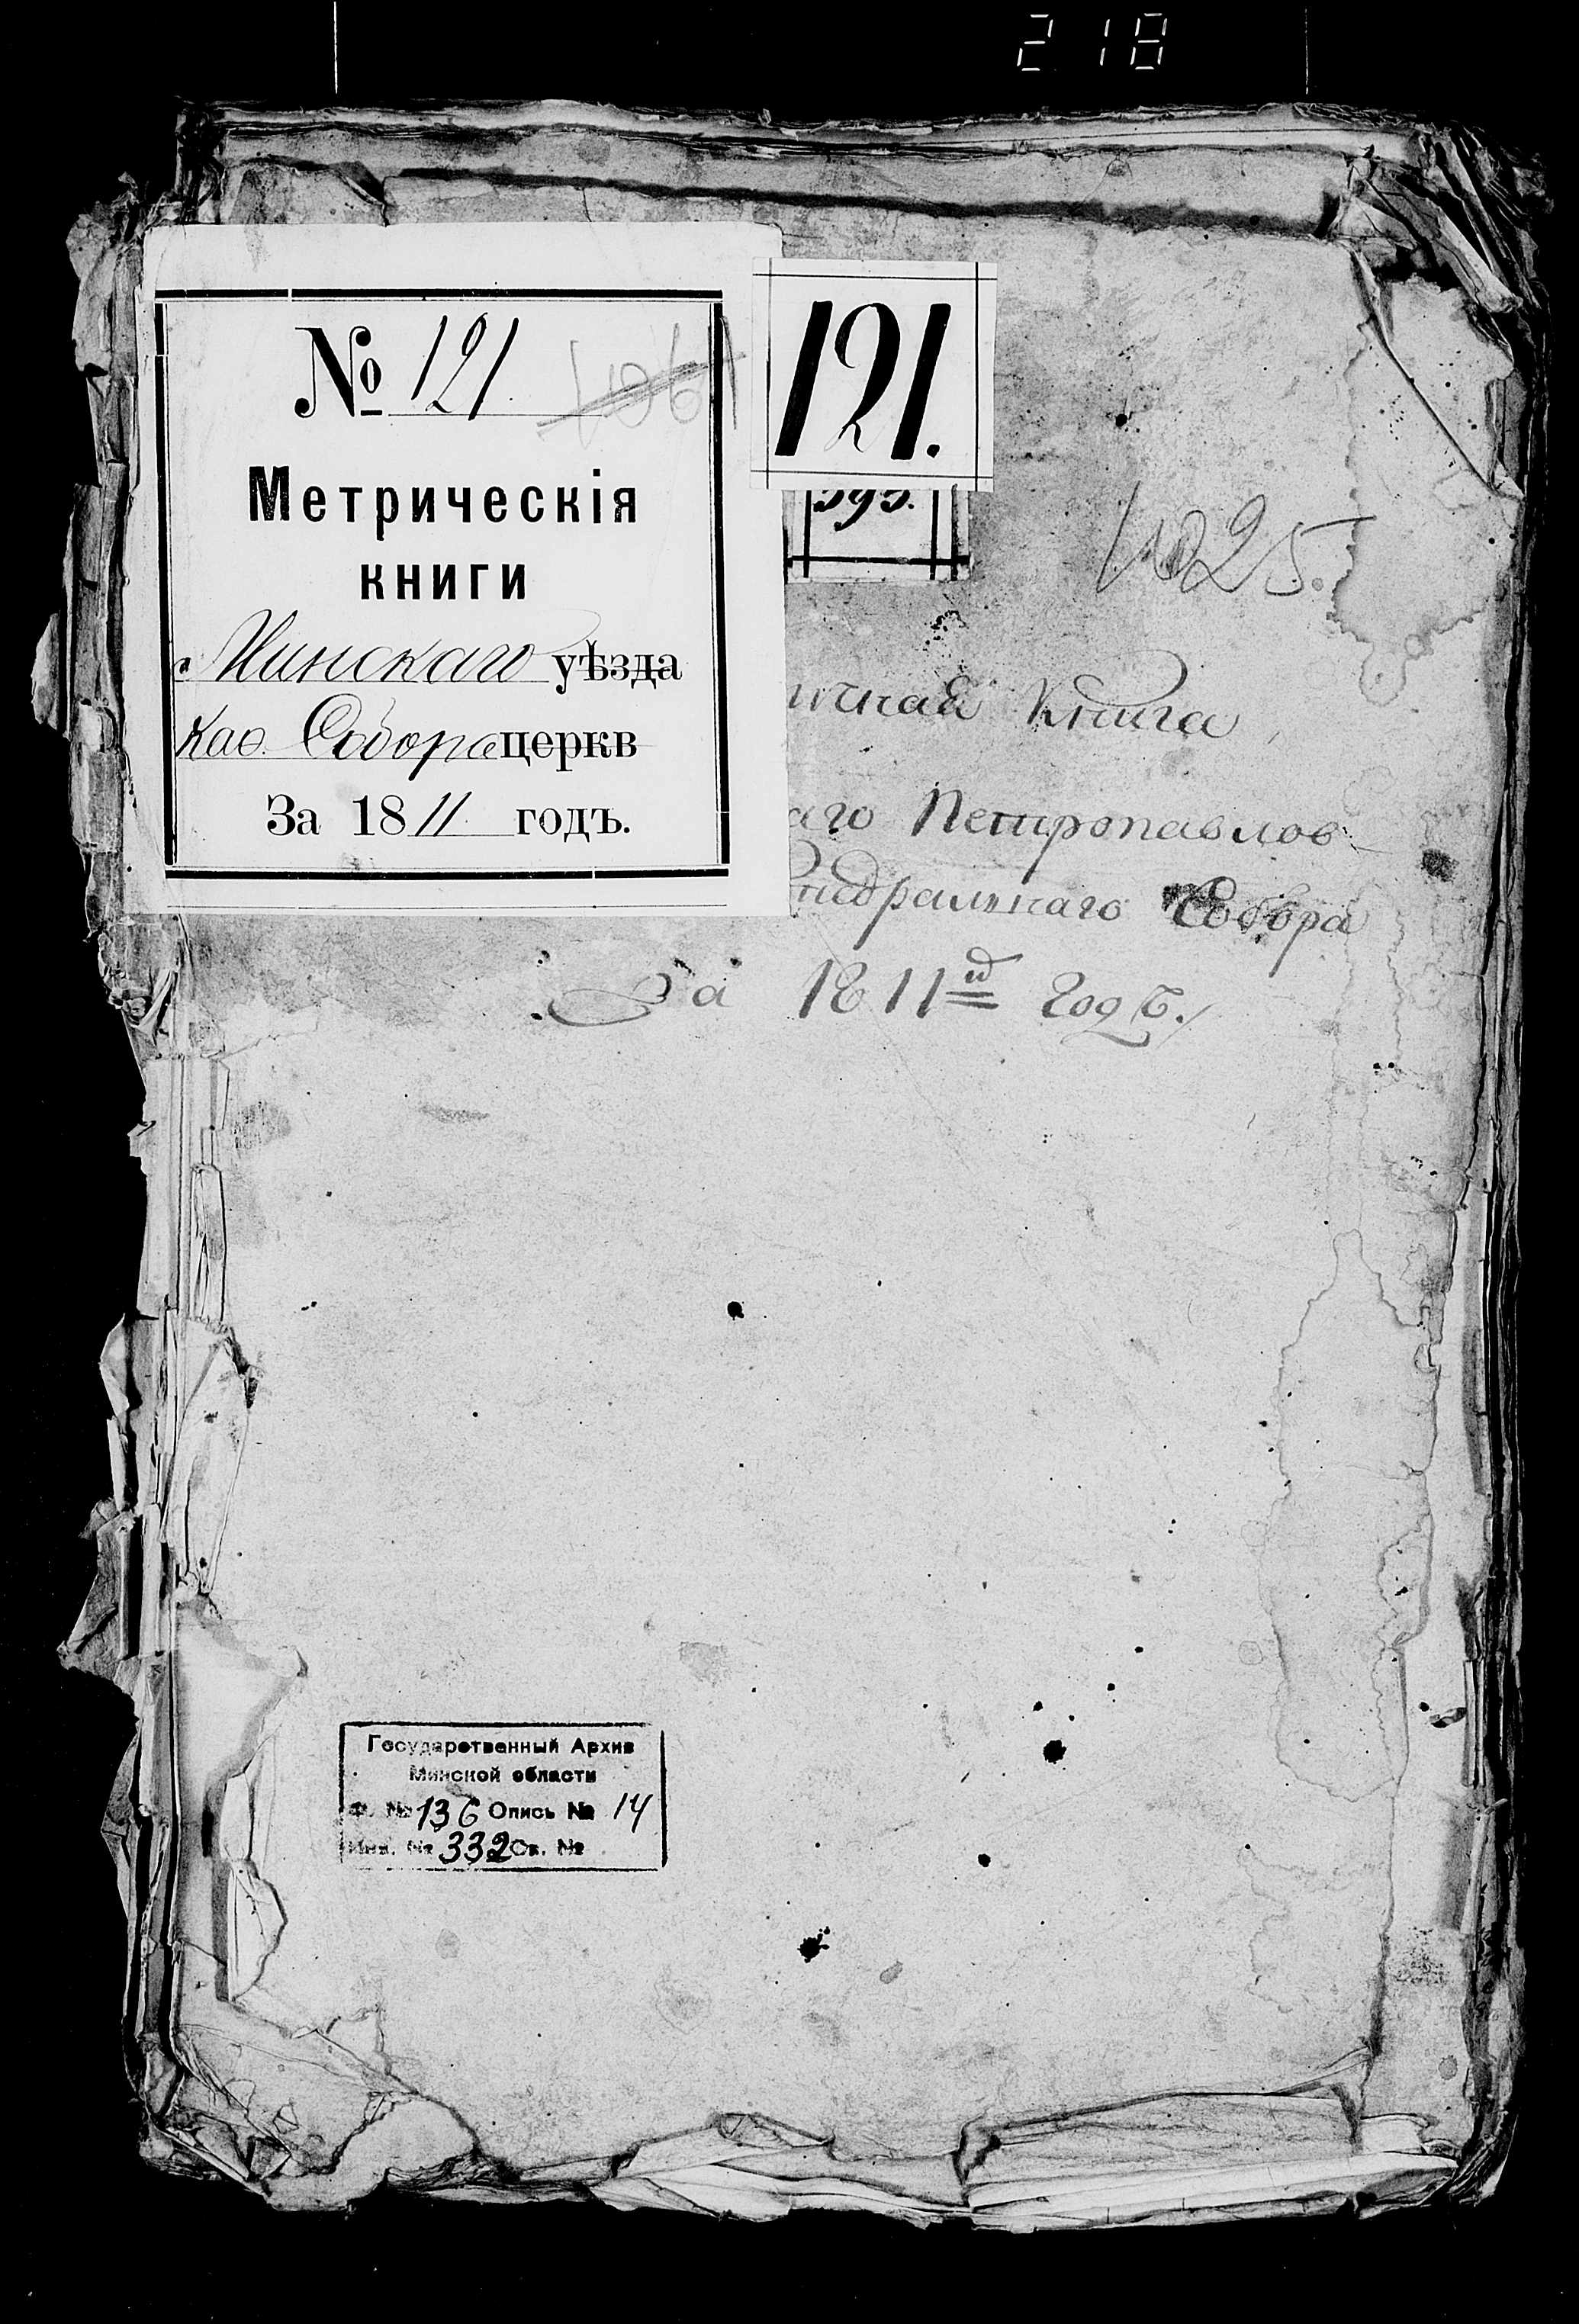 218
№ 121.
1061
121.
595.
1025.
Метрическія
книги
Минскаго уѣзда
Каѳ. Собора церкв
За 1811 годъ.
ичная Книга
аго Петропавлов-
едральнаго Собора
За 1811й годъ.
Государственный Архив
Минской области
Ф. № 136 Опись № 14
Инв. № 332 Св. №